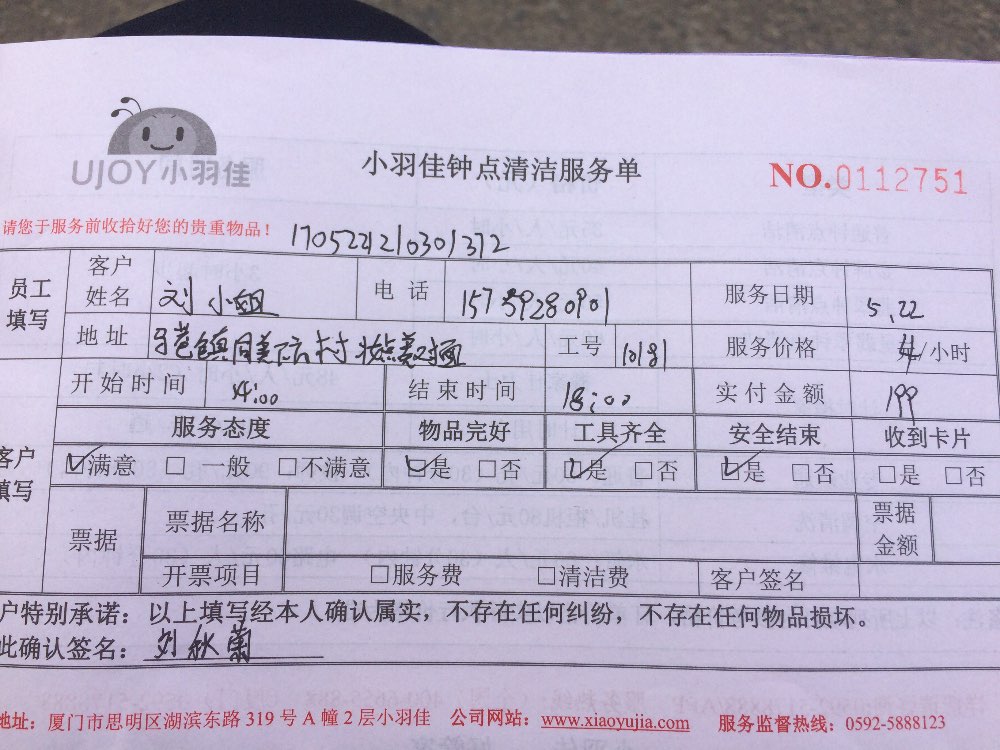 UJOY小羽佳
小羽佳钟点清洁服务单
NO.0112751
请您于服务前收拾好您的贵重物品！
1705221210301312
员工填写 客户姓名 刘小姐 电话 15739280901 服务日期 5.22
地址 同美 对面 工号 10181 服务价格 /小时
开始时间 14:00 结束时间 18:00 实付金额 199
服务态度 物品完好 工具齐全 安全结束 收到卡片
客户填写 ☑满意 □一般 □不满意 ☑是 □否 ☑是 □否 ☑是 □否 □是 □否
票据 票据名称 票据金额
开票项目 □服务费 □清洁费 客户签名
户特别承诺：以上填写经本人确认属实，不存在任何纠纷，不存在任何物品损坏。
此确认签名：刘秋
地址：厦门市思明区湖滨东路 319 号 A 幢 2 层小羽佳 公司网站：www.xiaoyujia.com 服务监督热线：0592-5888123